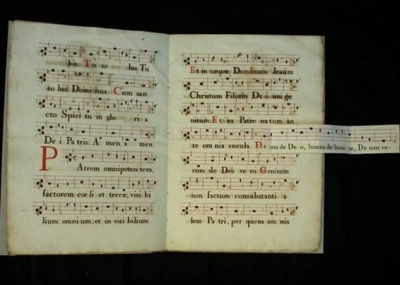 lus Tu so lus Tu
lus Dominus. Cum san
cto Spiri tu in glo ri a
De i Pa tris. A men. a men.
Patrem omnipoten tem,
factorem cœ li et terræ, visi bi
lium omni um, et in visi bilium.
Et in unum Dominum Jesum
Christum Filium De i uni ge
nitum. Et ex Patre na tum an
te om nia sæcula. De um de De o, lumen de lumi ne, De um ve
rum de De o ve ro. Genitum
non factum consubstanti a
lem Pa tri, per quem om nia